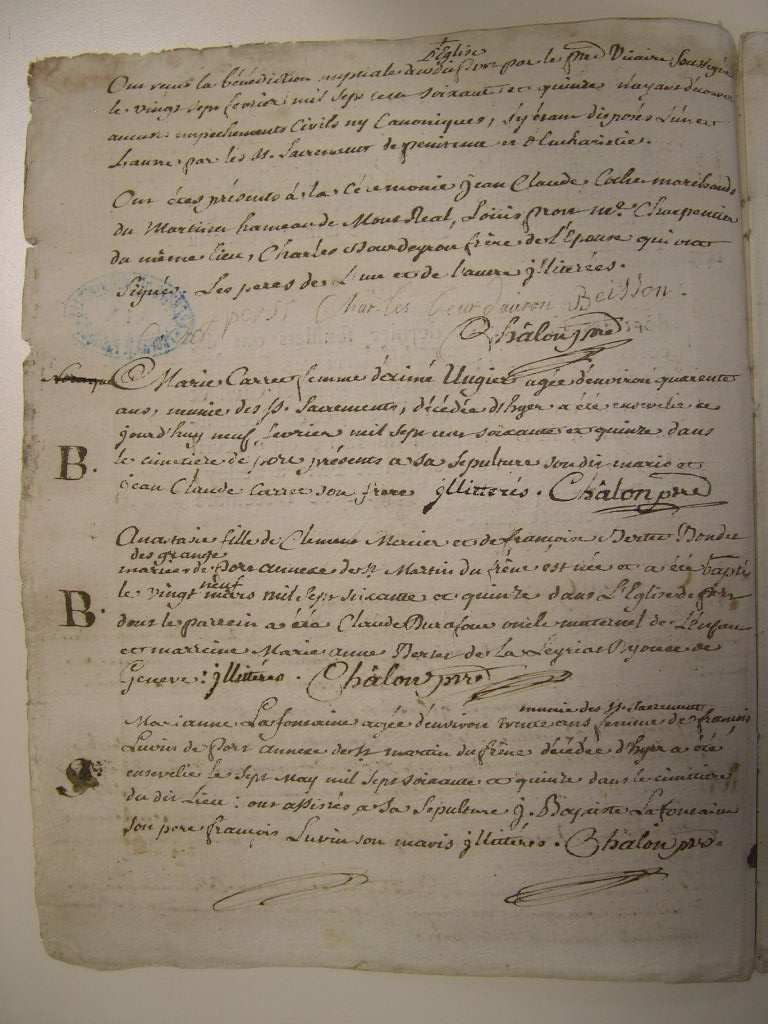 L'Eglise
Ont reçus la bénédiction nuptiale dans dit port par le pre Vicaire Soussigné
le vingt sept fevrier mil sept cent soixante et quinze n'ayant découvert
aucuns empechements Civils ny Canoniques, s'y étant disposés l'un et
L'autre par les SS. Sacrements de penitence et d'Eucharistie.
Ont étés présents á la Cérémonie jean Claude
du Martinet hameau de Mont Real, Loüis prost me. Charpentier
du même lieu, Charles Bourdeyron frère de l'Epouse qui ont
Signés. Les peres de l'une et de l'autre jllitérées.
prost Charles bourdauron Beisson
Châlon pre
Marie Carret femme d'aimé Ungier agée d'environ quarente
ans, munie des SS. Sacrements, décédée d'hyer a été ensevelie ce
jourd'huy neuf fevrier mil sept cent soixante et quinze dans
B. le cimetière de port présents a sa sépulture son dit mario et
jean Claude Carret son frere jllittérés. Châlon pre
Anastaise fille de Clement Mercier et de françoise Bertet
des grange
mariés de port annexe de St Martin du frêne est née et a été baptisé
neuf
B. le vingt mars mil sept soixante et quinze dans L'Eglise de port
dont le parrein a été Claude Durafour oncle maternel de L'enfan
et marreine Marie anne Bertet de la Leyriat
Geneve: jllittérés. Châlon pre
munie des SS. sacrement
Marianne Lafontaine agée d'environ trente ans femme de françois
Luvin de port annexe de St martin du frêne décédée d'hyer a été
ensevelie le sept May mil sept soixante et quinze dans le cimitière
du dit Lieu: ont assistés a sa Sepulture j. Baptiste Lafontaine
son pere françois Luvin son maris jllittérés. Châlon pre.